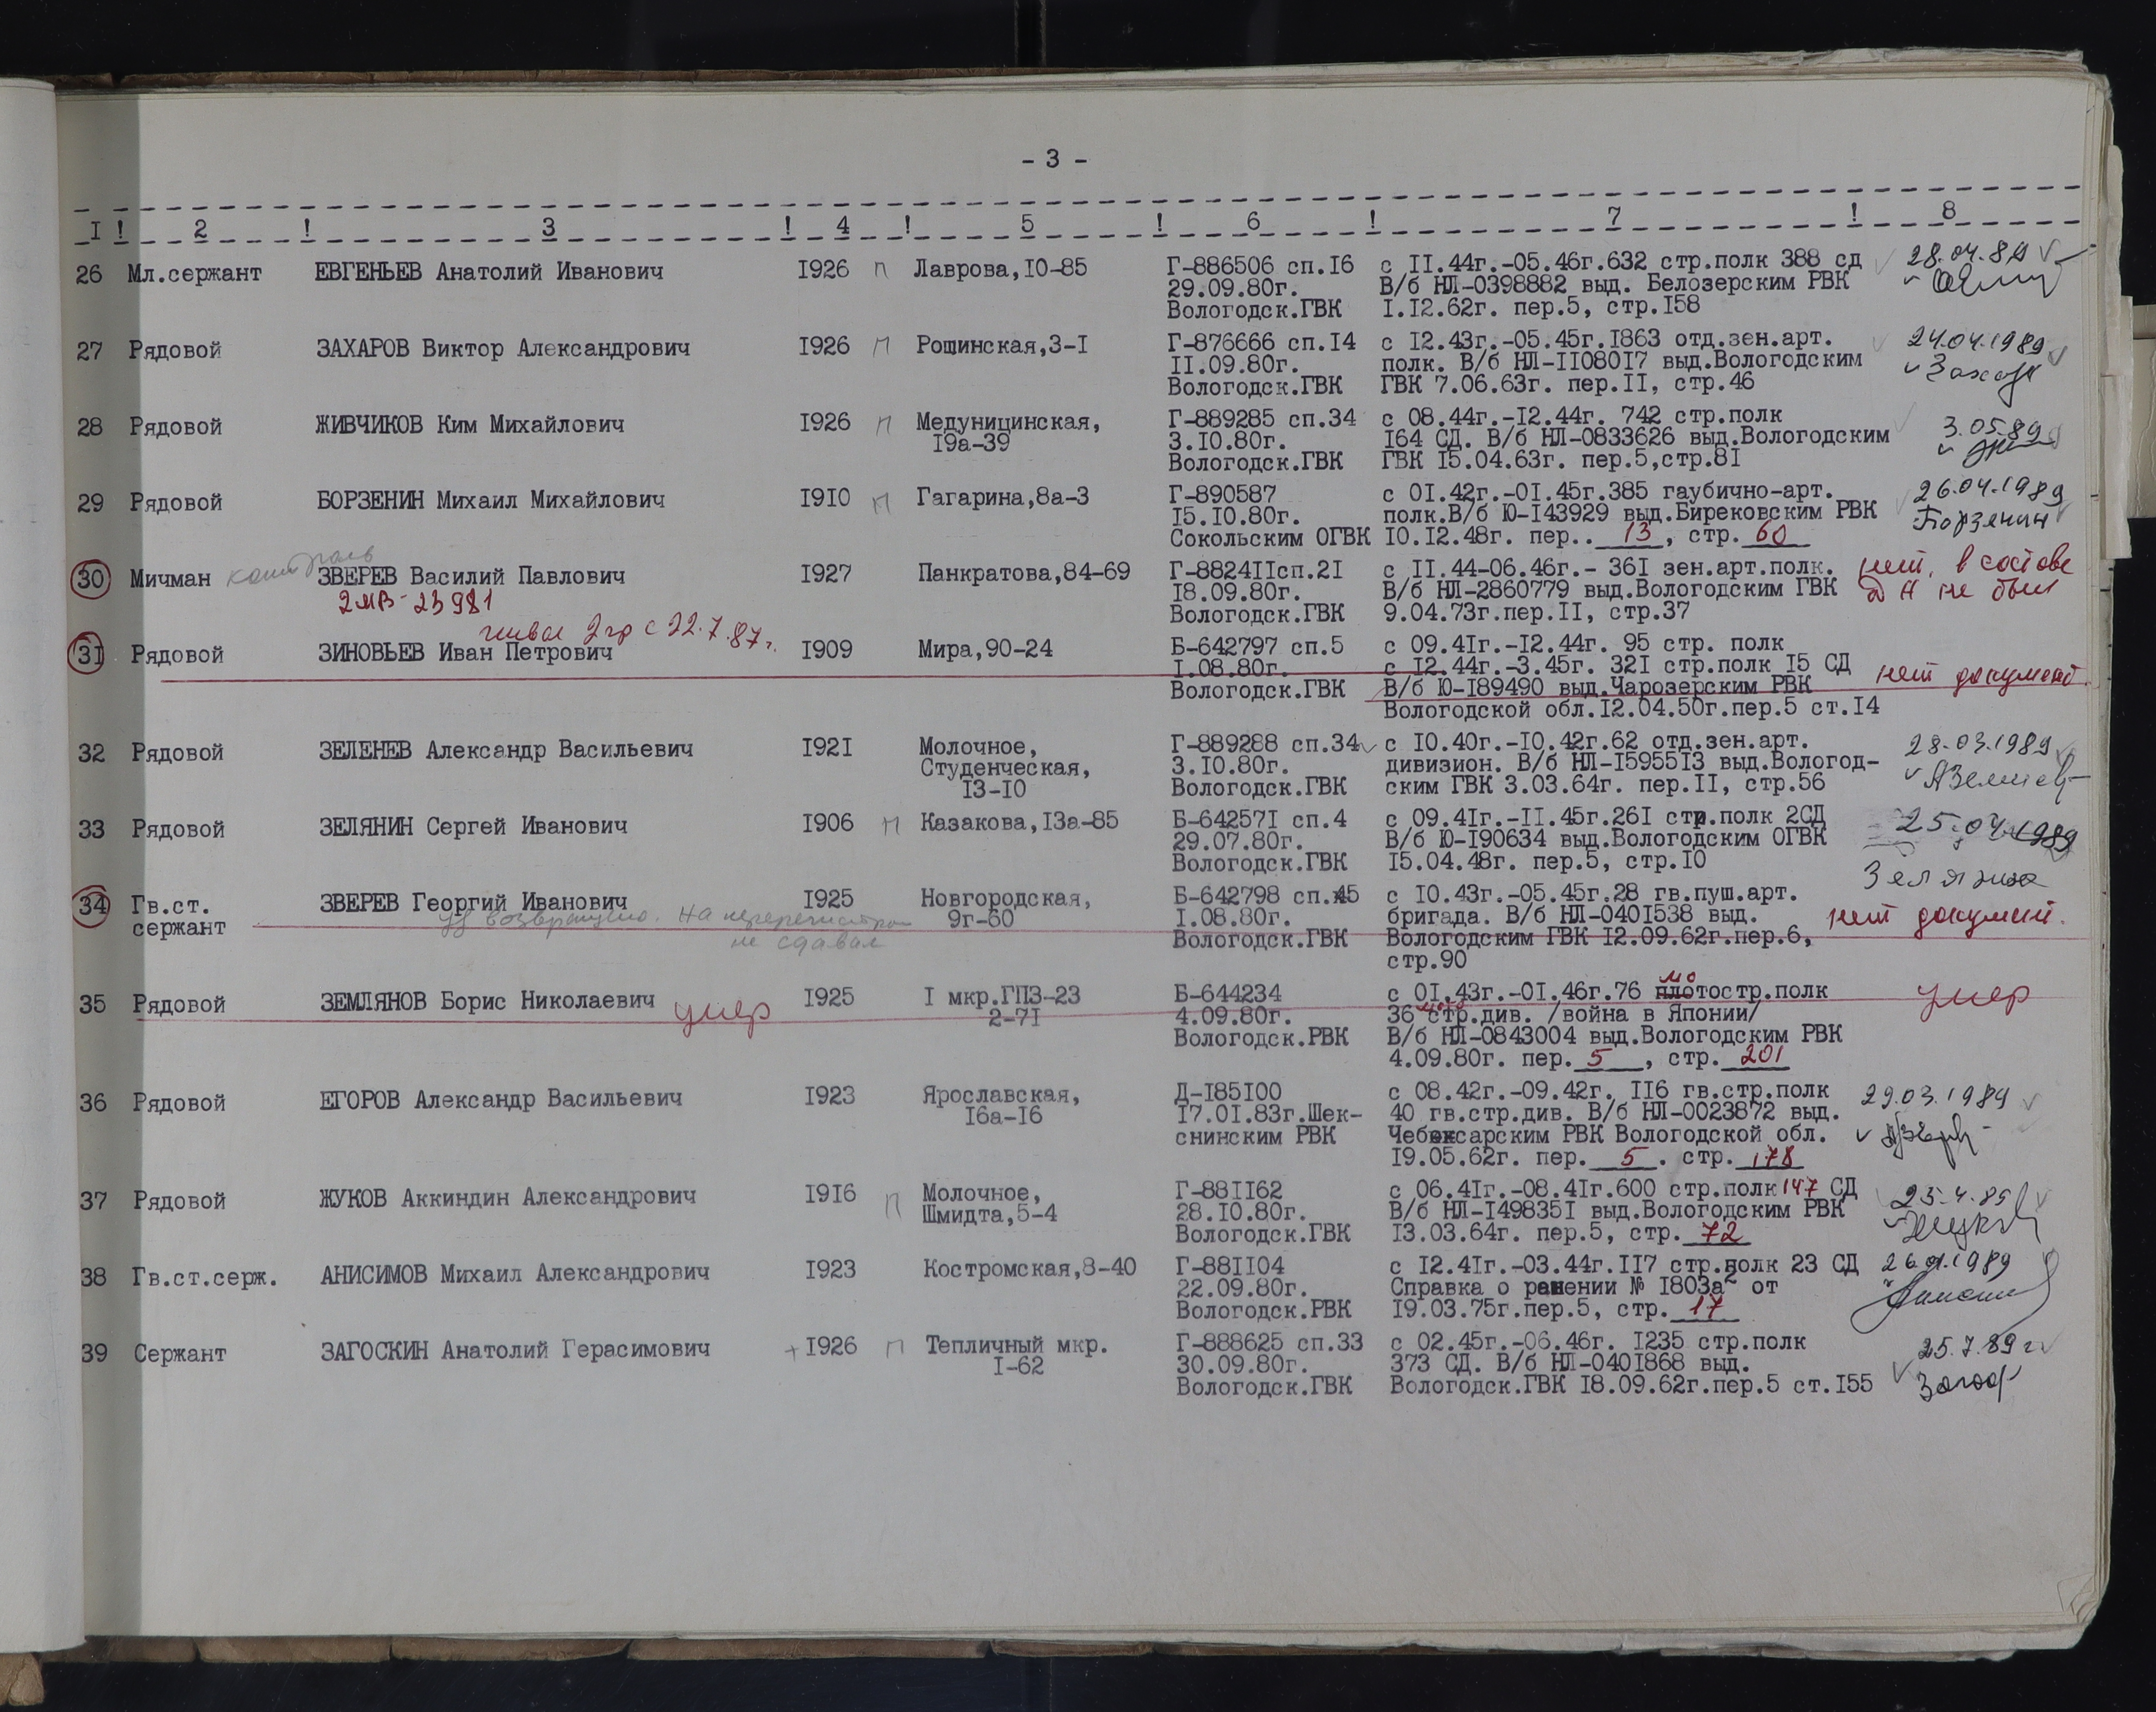 - 3 -
I ! 2 ! 3 ! 4 ! 5 ! 6 ! 7 ! 8
26 Мл.сержант ЕВГЕНЬЕВ Анатолий Иванович I926 п Лаврова,I0-85 Г-886506 сп.I6 с II.44г.-05.46г.632 стр.полк 388 сд 28.04.89
29.09.80г. В/б НЛ-0398882 выд. Белозерским РВК
Вологодск.ГВК I.I2.62г. пер.5, стр.I58
27 Рядовой ЗАХАРОВ Виктор Александрович I926 п Рощинская,3-I Г-876666 сп.I4 с I2.43г.-05.45г.I863 отд.зен.арт. 24.04.1989
II.09.80г. полк. В/б НЛ-II080I7 выд.Вологодским
Вологодск.ГВК ГВК 7.06.63г. пер.II, стр.46
28 Рядовой ЖИВЧИКОВ Ким Михайлович I926 п Медуницинская, Г-889285 сп.34 с 08.44г.-I2.44г. 742 стр.полк 3.05.89
I9а-39 3.I0.80г. I64 СД. В/б НЛ-0833626 выд.Вологодским
Вологодск.ГВК ГВК I5.04.63г. пер.5,стр.8I
29 Рядовой БОРЗЕНИН Михаил Михайлович I9I0 п Гагарина,8а-3 Г-890587 с 0I.42г.-0I.45г.385 гаубично-арт. 26.04.1989
I5.I0.80г. полк.В/б Ю-I43929 выд.Бирековским РВК Борзенин
Сокольским ОГВК I0.I2.48г. пер.. 13, стр. 60
30 Мичман контроль ЗВЕРЕВ Василий Павлович I927 Панкратова,84-69 Г-8824IIсп.2I с II.44-06.46г.- 36I зен.арт.полк. нет, в составе
2МВ-23981 I8.09.80г. В/б НЛ-2860779 выд.Вологодским ГВК ДА не был
Вологодск.ГВК 9.04.73г.пер.II, стр.37
2 гр с 22.7.87г.
31 Рядовой ЗИНОВЬЕВ Иван Петрович I909 Мира,90-24 Б-642797 сп.5 с 09.4Iг.-I2.44г. 95 стр. полк
I.08.80г. с I2.44г.-3.45г. 32I стр.полк I5 СД нет документ.
Вологодск.ГВК В/б Ю-I89490 выд.Чарозерским РВК
Вологодской обл.I2.04.50г.пер.5 ст.I4
32 Рядовой ЗЕЛЕНЕВ Александр Васильевич I92I Молочное, Г-889288 сп.34 с I0.40г.-I0.42г.62 отд.зен.арт. 28.03.1989
Студенческая, 3.I0.80г. дивизион. В/б НЛ-I5955I3 выд.Вологод-
I3-I0 Вологодск.ГВК ским ГВК 3.03.64г. пер.II, стр.56
33 Рядовой ЗЕЛЯНИН Сергей Иванович I906 п Казакова,I3а-85 Б-64257I сп.4 с 09.4Iг.-II.45г.26I стр.полк 2СД 25.04.1989
29.07.80г. В/б Ю-I90634 выд.Вологодским ОГВК
Вологодск.ГВК I5.04.48г. пер.5, стр.I0
34 Гв.ст. ЗВЕРЕВ Георгий Иванович I925 Новгородская, Б-642798 сп.45 с I0.43г.-05.45г.28 гв.пуш.арт.
сержант возвращено. на 9г-60 I.08.80г. бригада. В/б НЛ-040I538 выд. нет документ.
не сдавал Вологодск.ГВК Вологодским ГВК I2.09.62г.пер.6,
стр.90
35 Рядовой ЗЕМЛЯНОВ Борис Николаевич умер I925 I мкр.ГПЗ-23 Б-644234 с 0I.43г.-0I.46г.76 мотостр.полк умер
2-7I 4.09.80г. 36 мотостр.див. /война в Японии/
Вологодск.РВК В/б НЛ-0843004 выд.Вологодским РВК
4.09.80г. пер. 5, стр. 201
36 Рядовой ЕГОРОВ Александр Васильевич I923 Ярославская, Д-I85I00 с 08.42г.-09.42г. II6 гв.стр.полк 29.03.1989
I6а-I6 I7.0I.83г.Шек- 40 гв.стр.див. В/б НЛ-0023872 выд.
снинским РВК Чебоксарским РВК Вологодской обл.
I9.05.62г. пер. 5. стр. 178
37 Рядовой ЖУКОВ Аккиндин Александрович I9I6 п Молочное, Г-88II62 с 06.4Iг.-08.4Iг.600 стр.полк 147 СД 25.4.89
Шмидта,5-4 28.I0.80г. В/б НЛ-I49835I выд.Вологодским РВК
Вологодск.ГВК I3.03.64г. пер.5, стр. 72
38 Гв.ст.серж. АНИСИМОВ Михаил Александрович I923 Костромская,8-40 Г-88II04 с I2.4Iг.-03.44г.II7 стр.полк 23 СД
22.09.80г. Справка о ранении № I803а2 от
Вологодск.РВК I9.03.75г.пер.5, стр. 17
39 Сержант ЗАГОСКИН Анатолий Герасимович + I926 п Тепличный мкр. Г-888625 сп.33 с 02.45г.-06.46г. I235 стр.полк 25.7.89 г
I-62 30.09.80г. 373 СД. В/б НЛ-040I868 выд.
Вологодск.ГВК Вологодск.ГВК I8.09.62г.пер.5 ст.I55